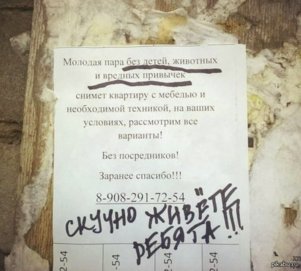 Молодая пара без детей, животных
и вредных привычек
снимет квартиру с мебелью и
необходимой техникой, на ваших
условиях, рассмотрим все
варианты!
Без посредников!
Заранее спасибо!!!
8-908-291-72-54
СКУЧНО ЖИВЁТЕ
РЕБЯТА!!!
2-54
2-54